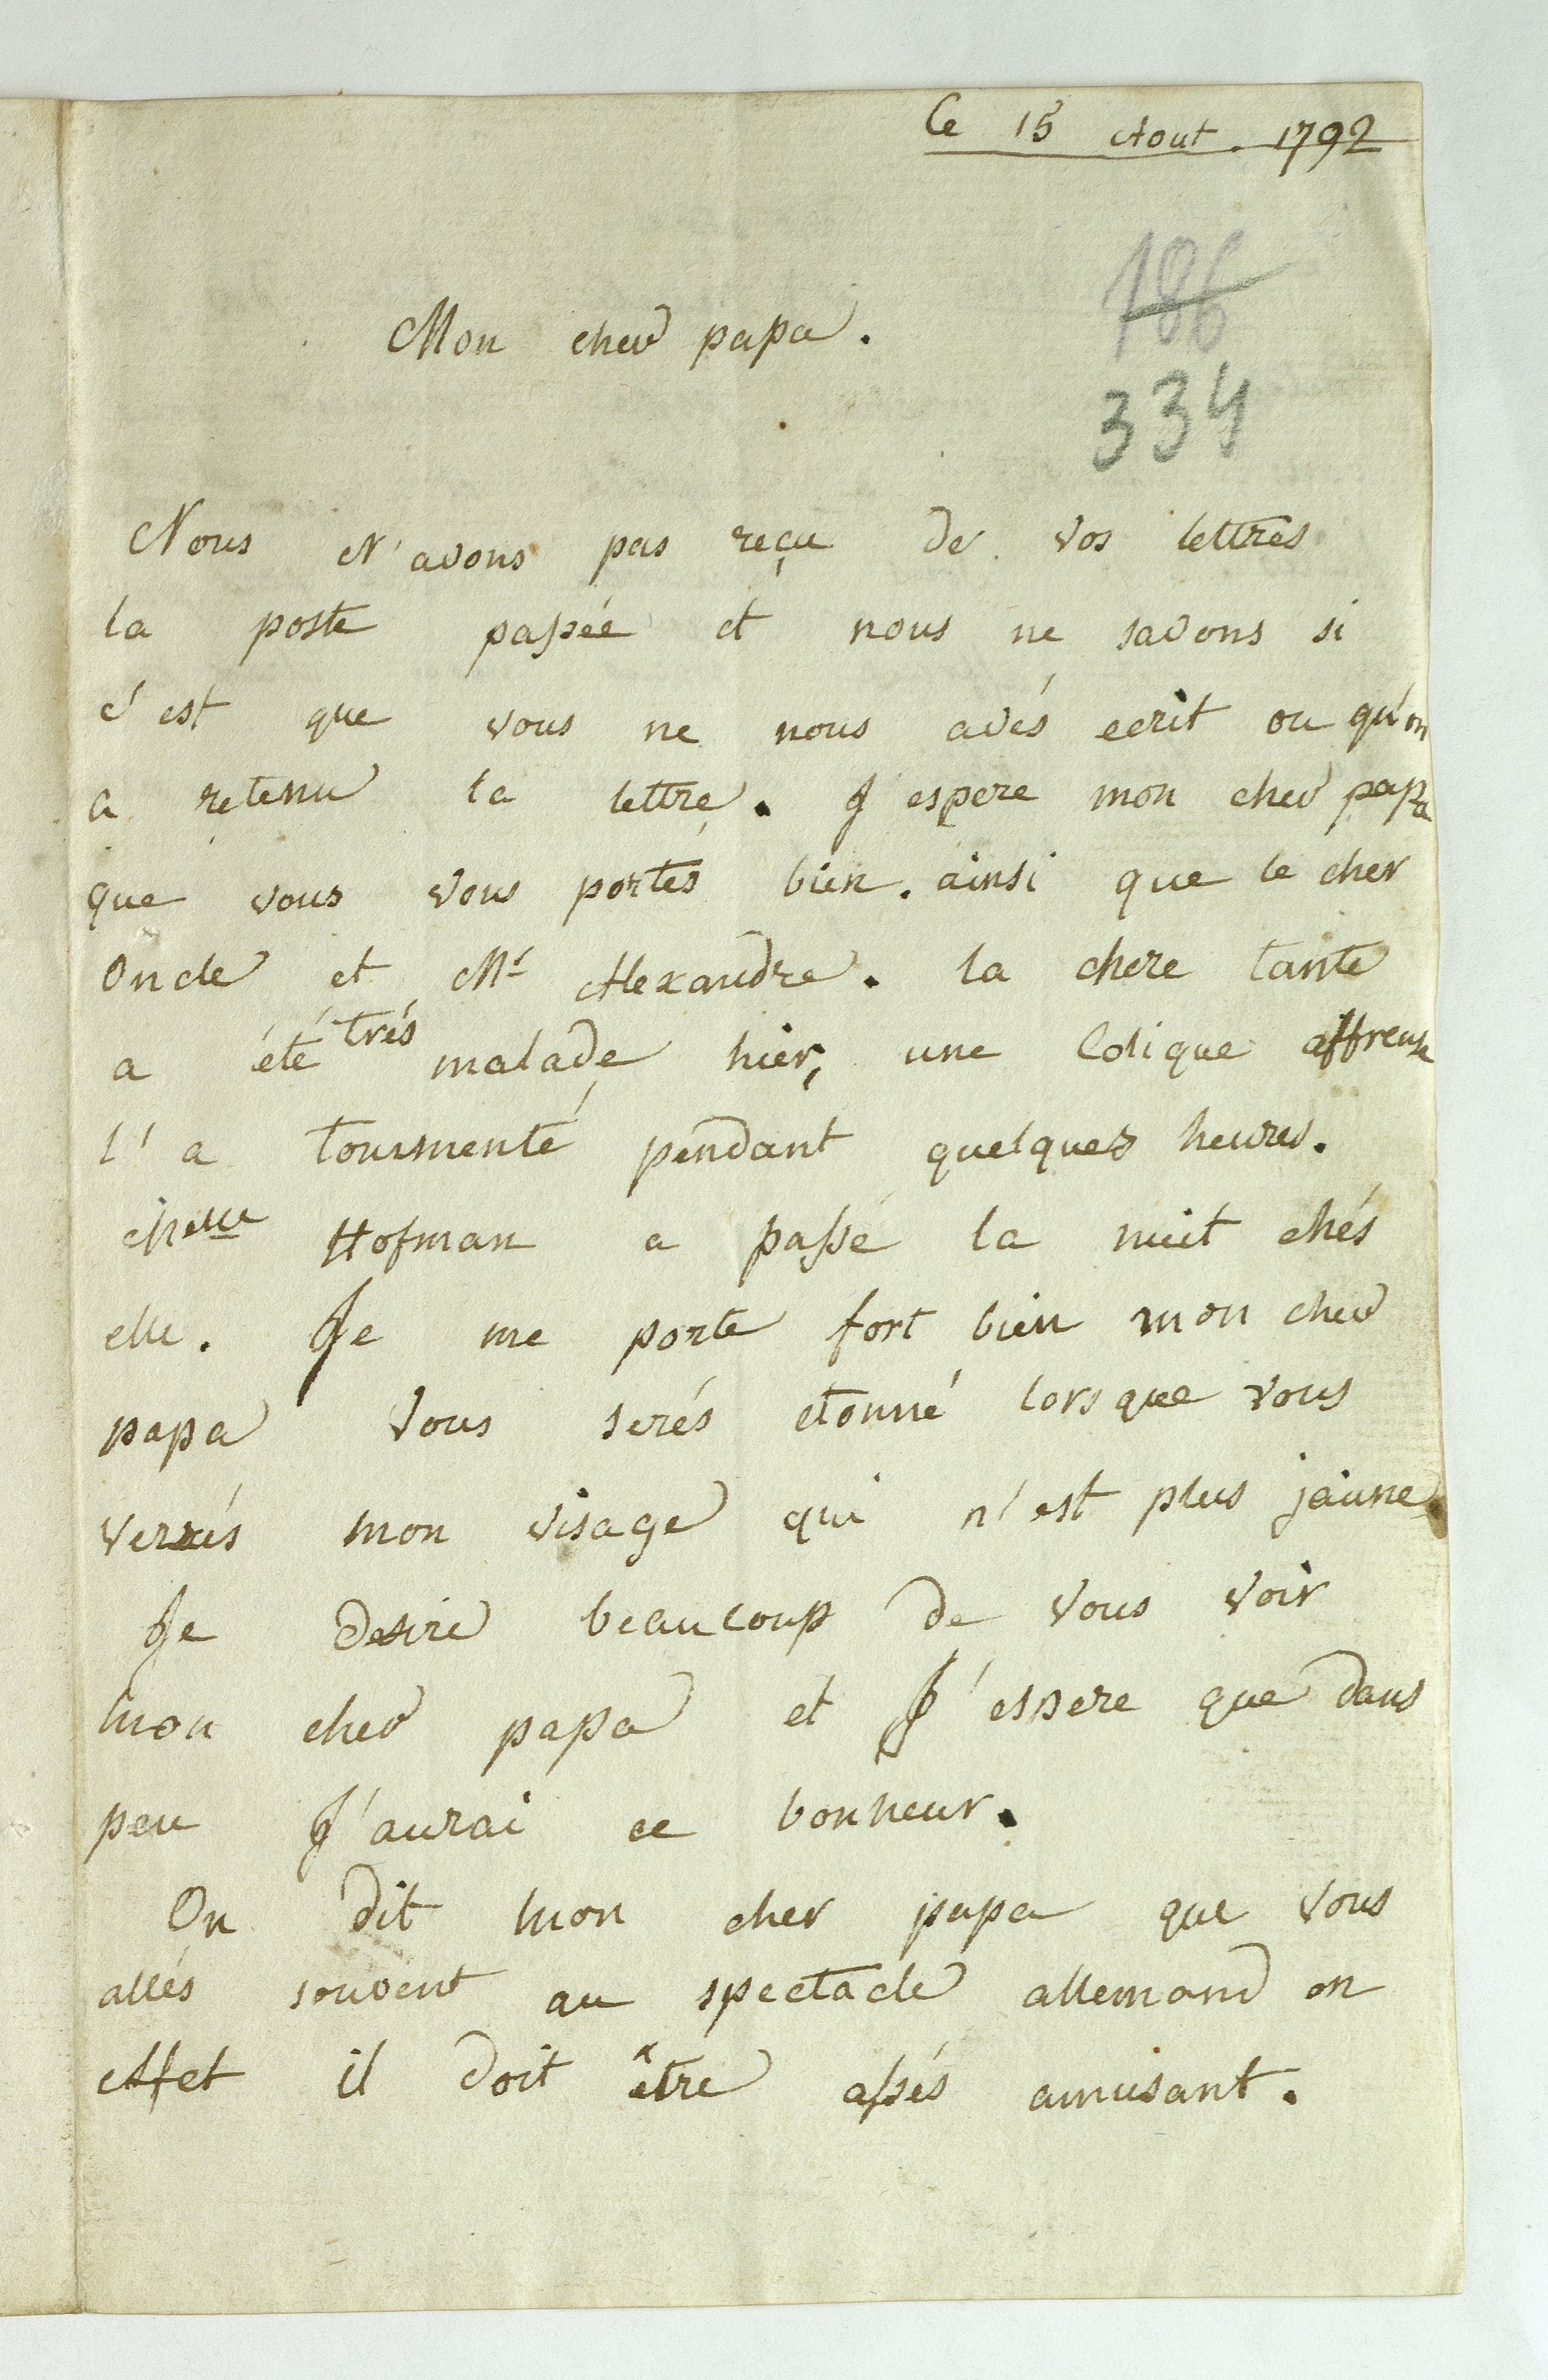 Ce 15 Aout. 1792
186
Mon cher papa.
334
Nous N'avons pas reçu de vos lettres
la poste passée et nous ne savons si
c'est que vous ne nous avés ecrit ou qu'on
a retenu la lettre. J espere mon cher papa
que vous vous portés bien. ainsi que le cher
Oncle et Mr Alexandre. la chere tante
a été très malade hier, une Colique affreuse
l'a tourmenté pendant quelques heures.
Melle Hofman a passé la nuit chés
elle. Je me porte fort bien mon cher
papa vous serés etonné lorsque vous
verrés mon visage qui n'est plus jaune
Je desire beaucoup de vous voir
mon cher papa et J'espere que dans
peu J'aurai ce bonheur.
On dit mon cher papa que vous
allés souvent au spectacle allemand on
effet il doit être assés amusant.